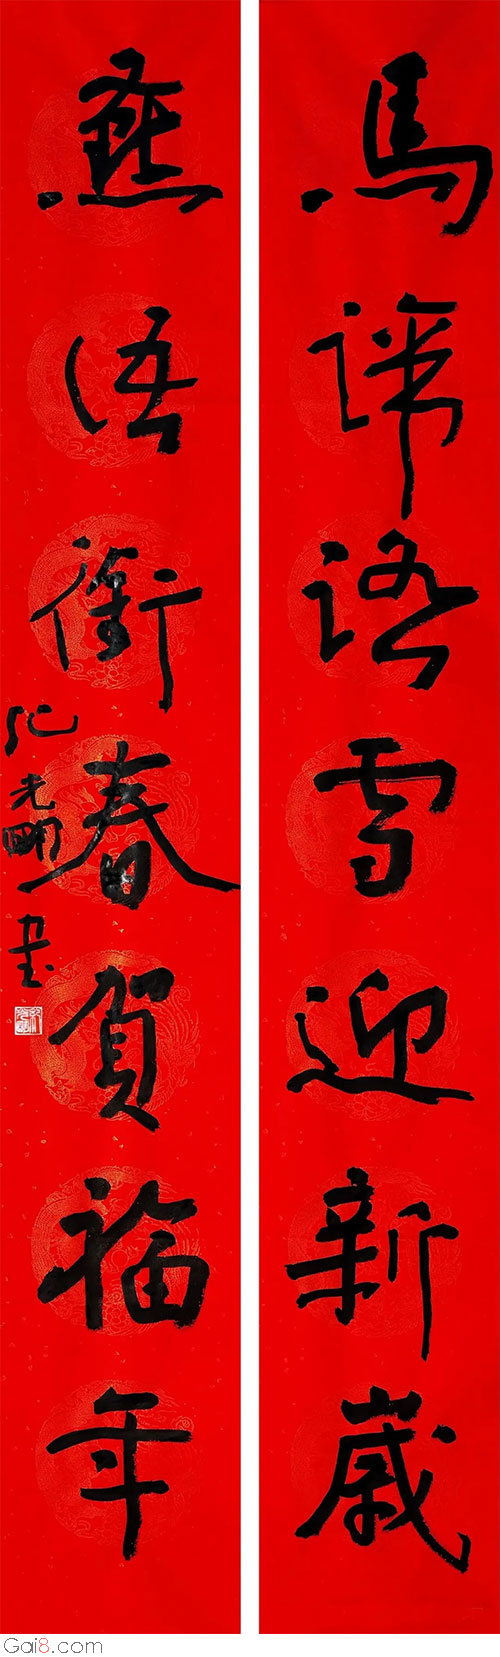 馬蹄踏雪迎新歲
燕語銜春賀福年
纪光明書
Gai8.com